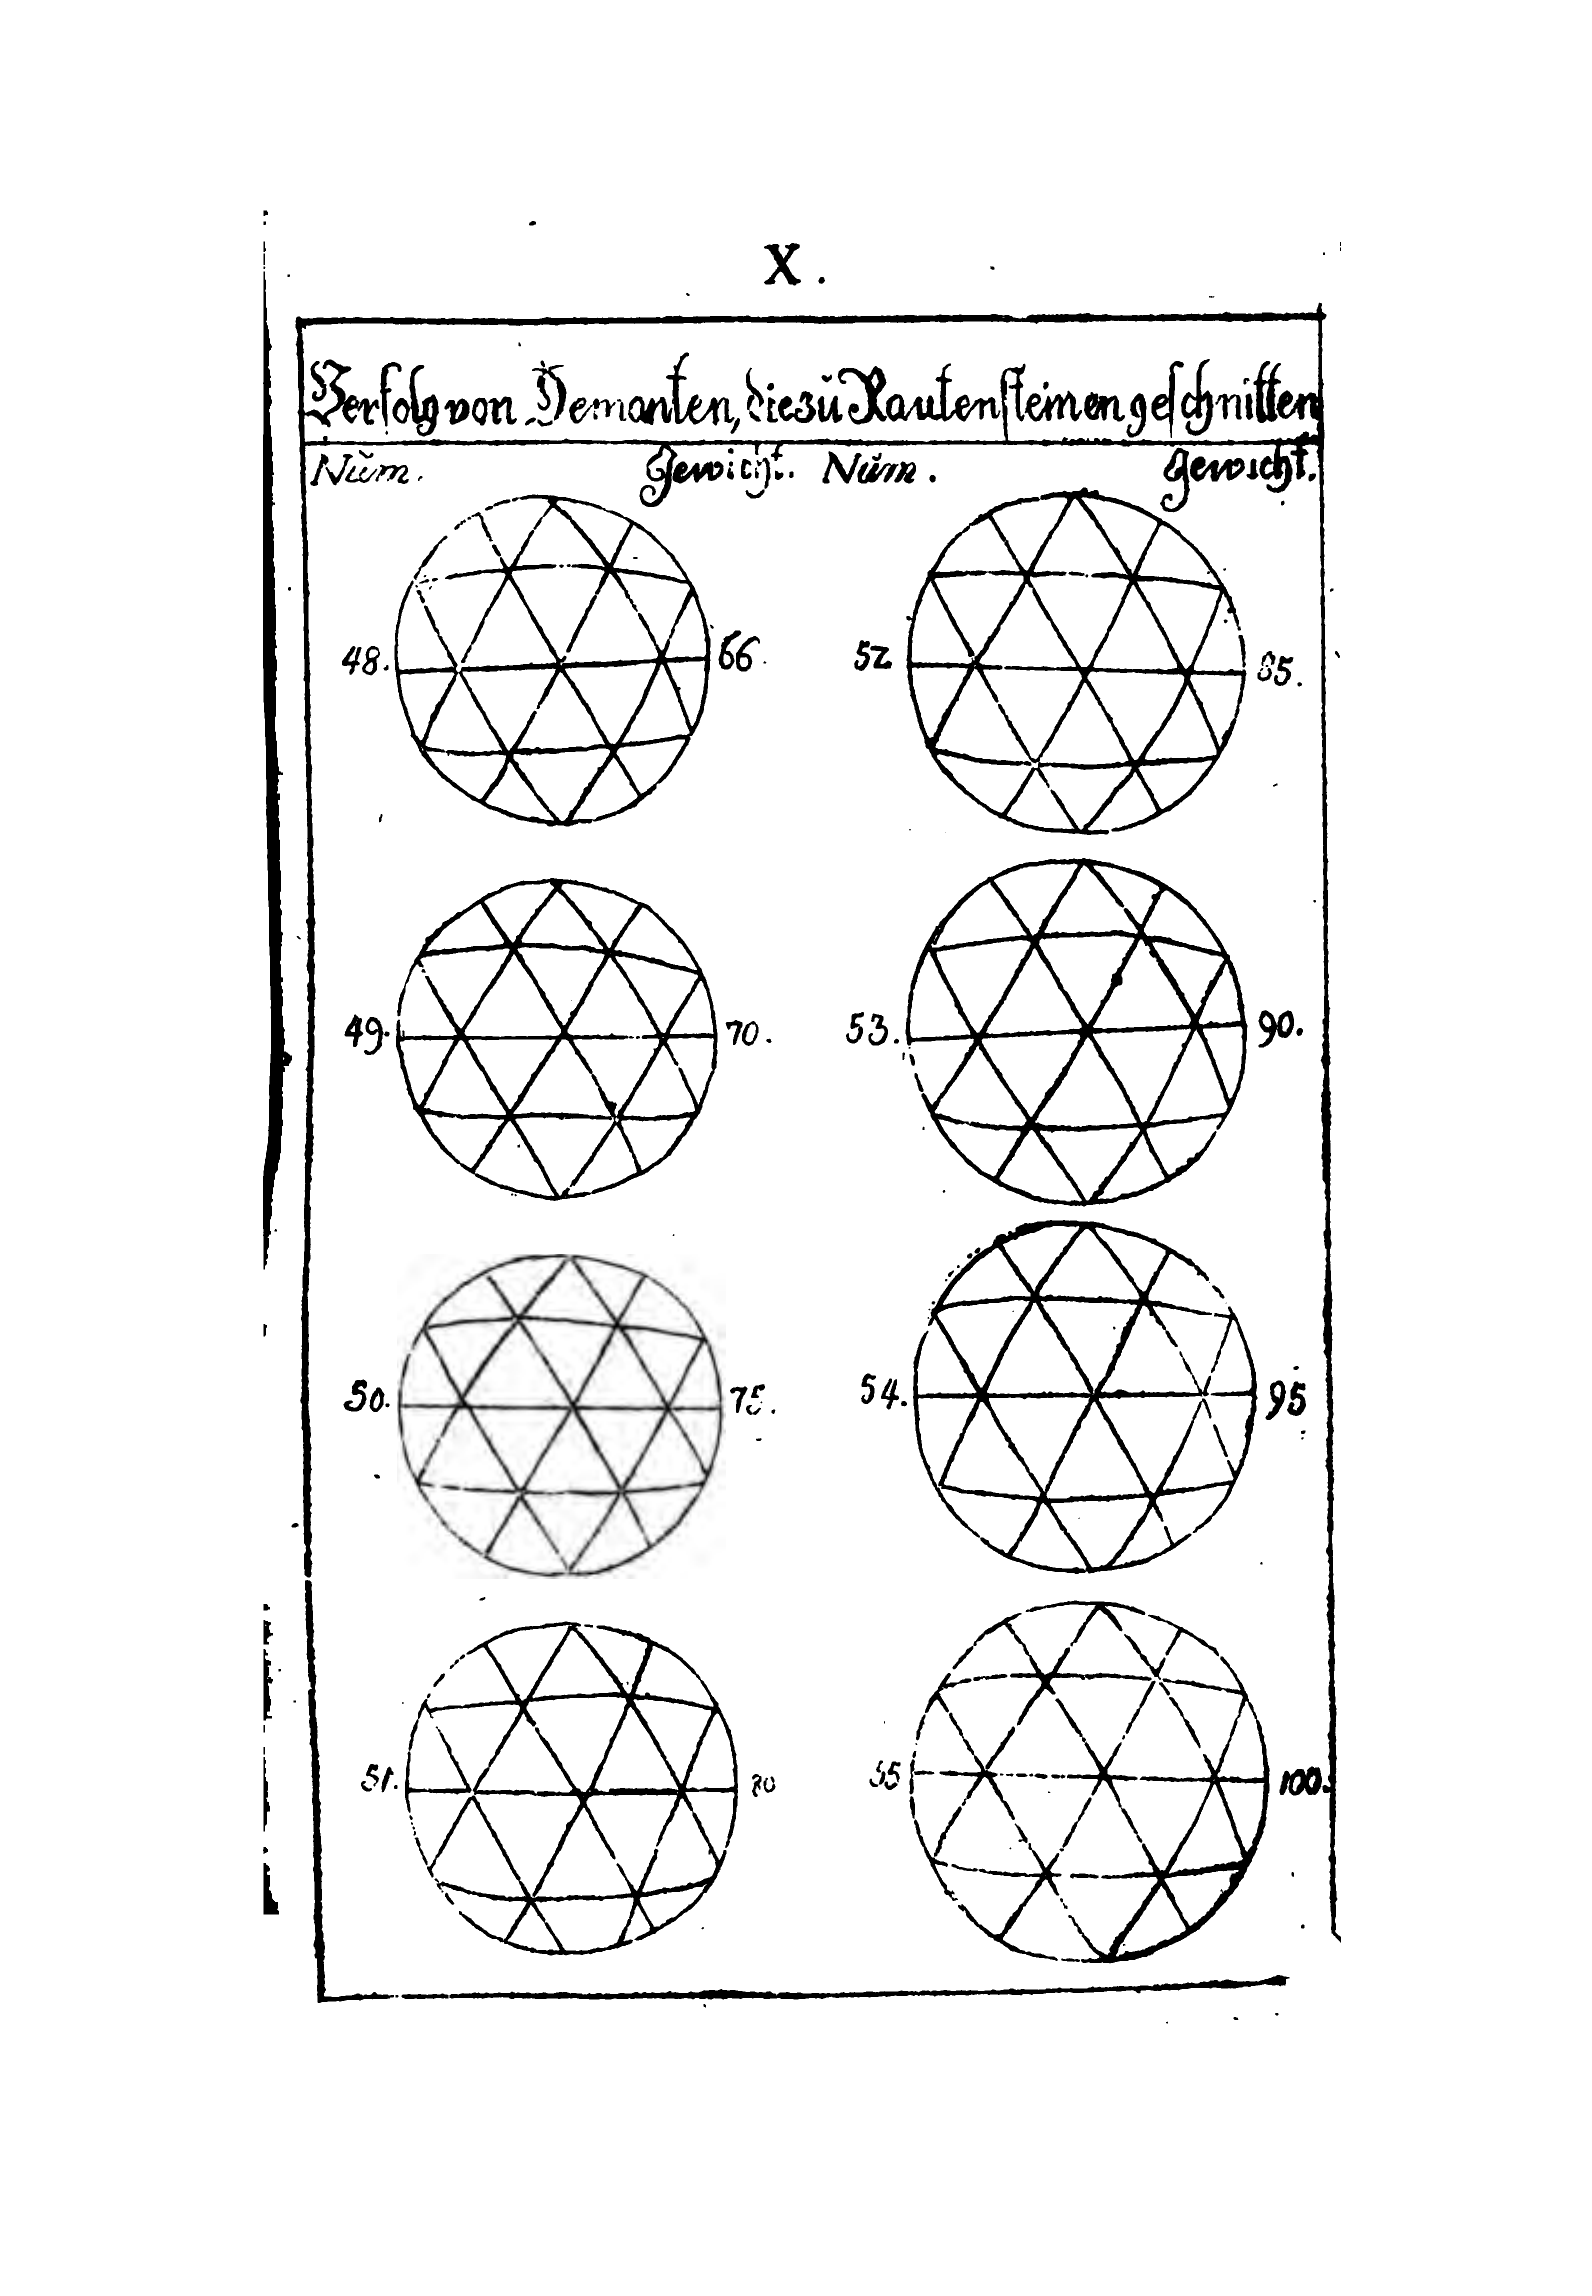 X.
Verfolg von Demanten, die zŭ Rautensteinen geschnitten
Nŭm. Gewicht. Nŭm. Gewicht.
48. 66. 52. 85.
49. 70. 53. 90.
50. 75. 54. 95
51. 80 55 100.